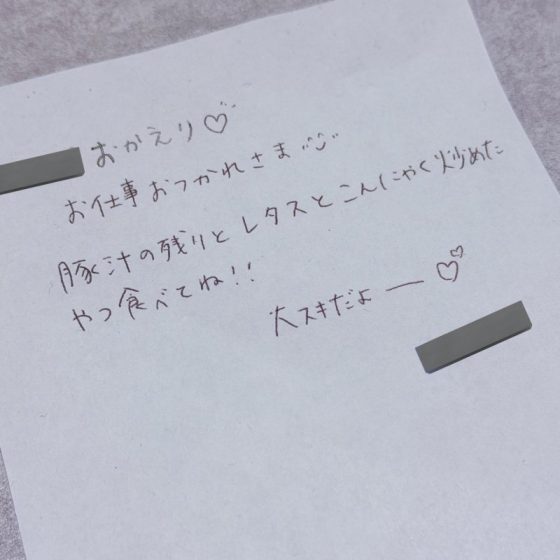 おかえり♡
お仕事おつかれさま
豚汁の残りとレタスとこんにゃく炒めた
やつ食べてね!!
大スキだよー♡♡